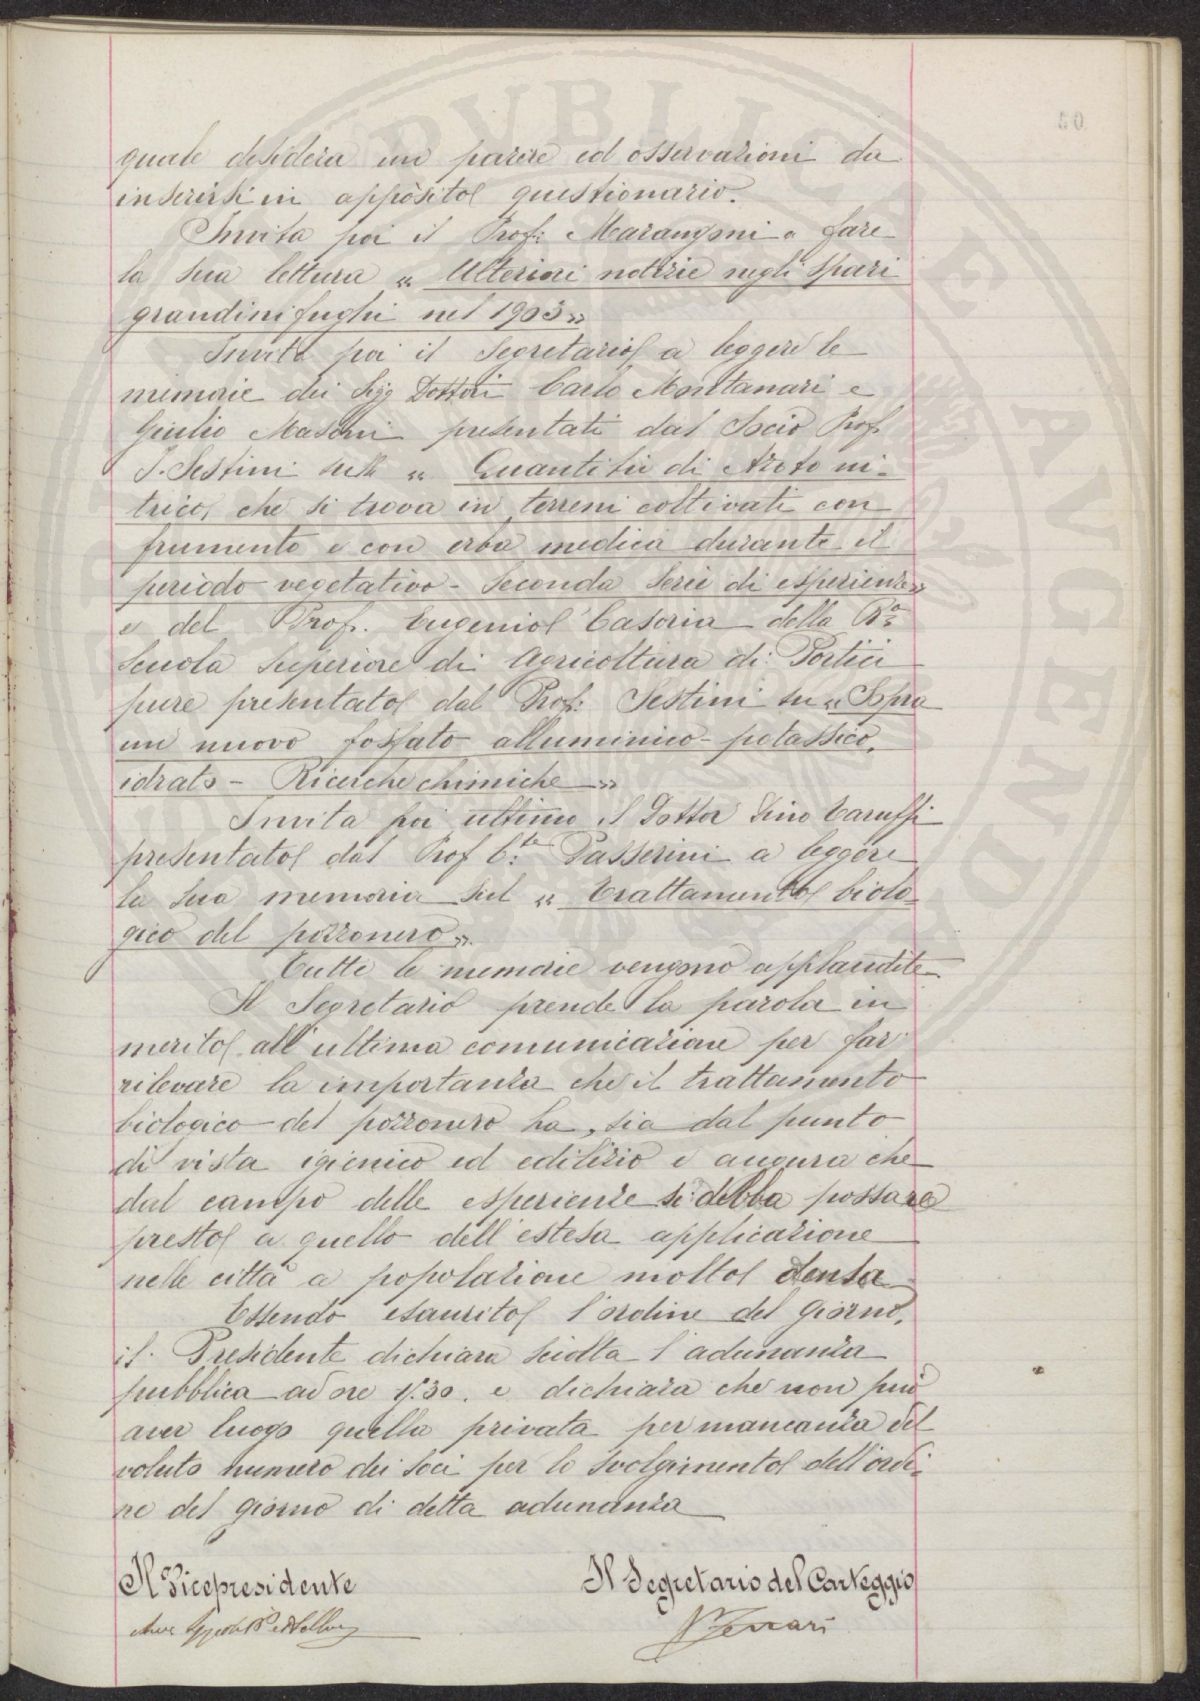 quale desidera un parere ed osservazioni da
inserirsi in apposito questionario.
Invita poi il Prof: Marangoni a fare
la sua lettura « Ulteriori notizie negli spari
grandinifughi nel 1903 »
Invita poi il Segretario a leggere le
memorie dei Sigg Dottori Carlo Montanari e
Giulio Masoni presentati dal Socio Prof.
F. Sestini sulla « Quantità di Azoto ni-
trico, che si trova in terreni coltivati con
frumento e con erba medica durante il
periodo vegetativo - Seconda Serie di esperienze »
e del Prof. Eugenio Casoria della Ra
Scuola Superiore di Agricoltura di Portici
pure presentato dal Prof: Sestini su « Sopra
un nuovo fosfato alluminico-potassico,
idrato - Ricerche chimiche »
Invita poi ultimo il Dottor Dino Taruffi
presentato dal Prof C.te Passerini a leggere
la sua memoria sul « Trattamento biolo-
gico del pozzonero ».
Tutte le memorie vengono applaudite
Il Segretario prende la parola in
merito all'ultima comunicazione per far
rilevare la importanza che il trattamento
biologico del pozzonero ha, sia dal punto
di vista igienico ed edilizio e augura che
dal campo delle esperienze si debba possare
presto a quello dell'estesa applicazione
nelle città a popolazione molto densa
Essendo esaurito l'ordine del giorno,
il Presidente dichiara sciolta l'adunanza
pubblica ad ore 1.30. e dichiara che non può
aver luogo quella privata per mancanza del
voluto numero dei soci per lo svolgimento dell'ordi-
ne del giorno di detta adunanza
Il Vicepresidente Il Segretario del Carteggio
Ferrari
PVBLICAE AVGENDAE